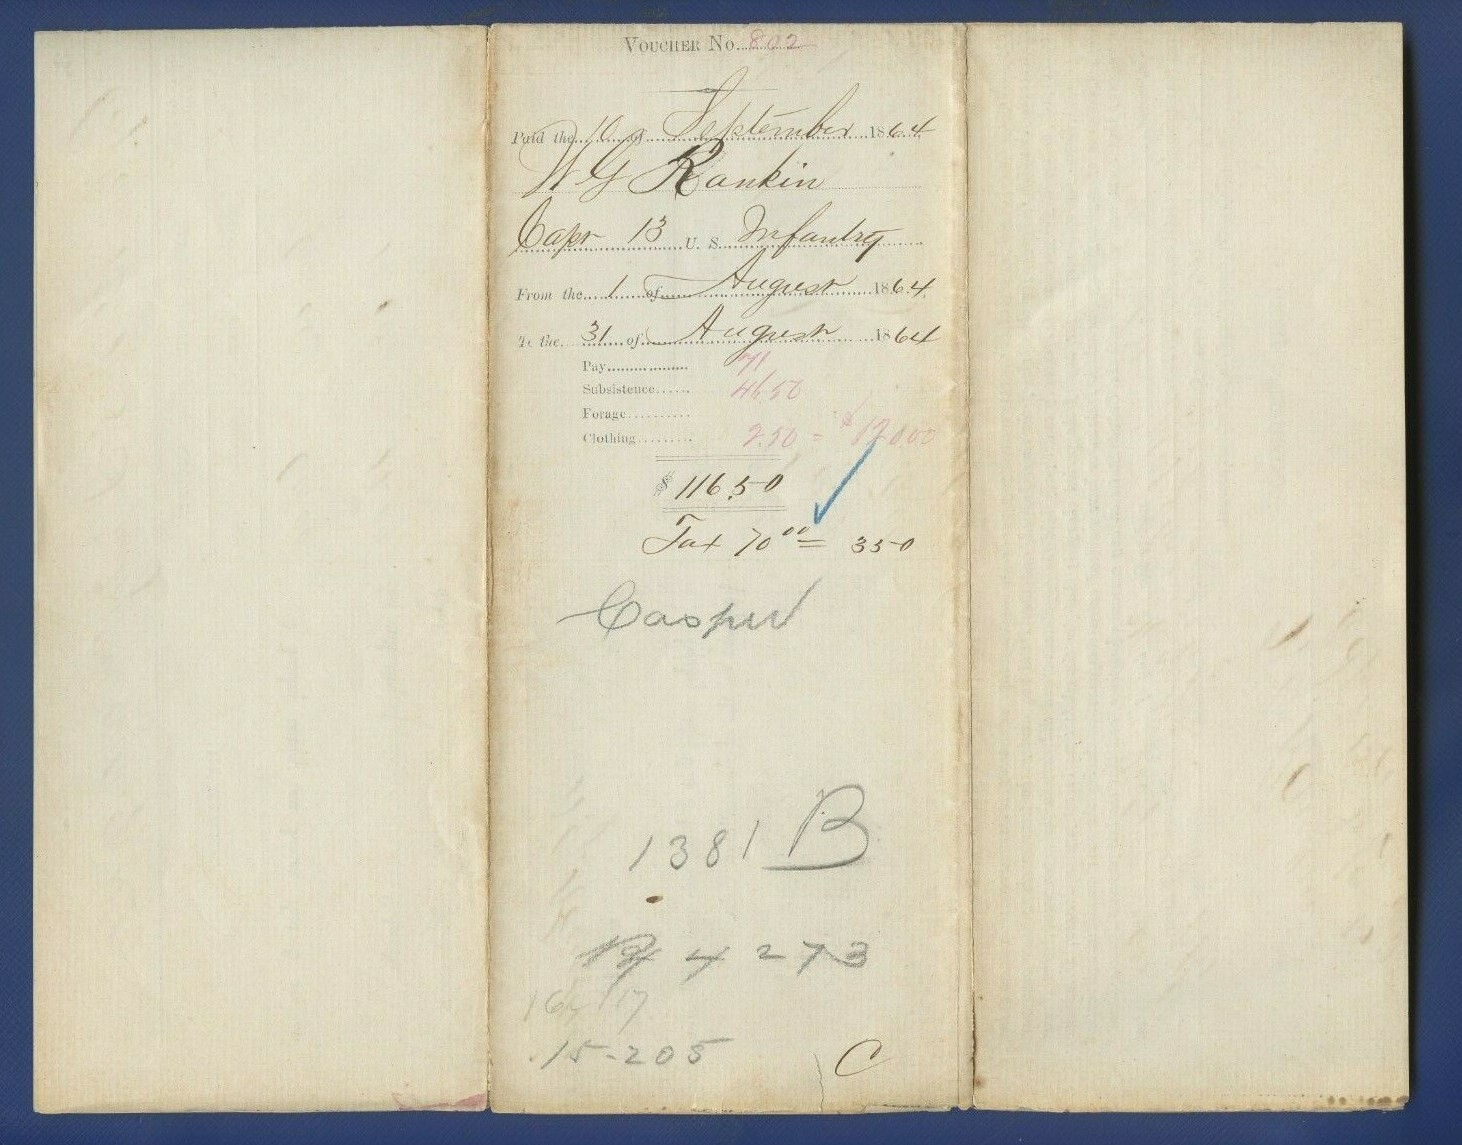 VOUCHER No. 802
Paid the 10 of September 1864
W G Rankin
Capt 13 U. S. Infantry
From the 1 of August 1864
To the 31 of August 1864
Pay 71
Subsistence 46.50
Forage
Clothing 2.50 = $ 120.00
$ 116.50
Tax 70 00 = 350
Casper
1381 B
4273
15-205
C